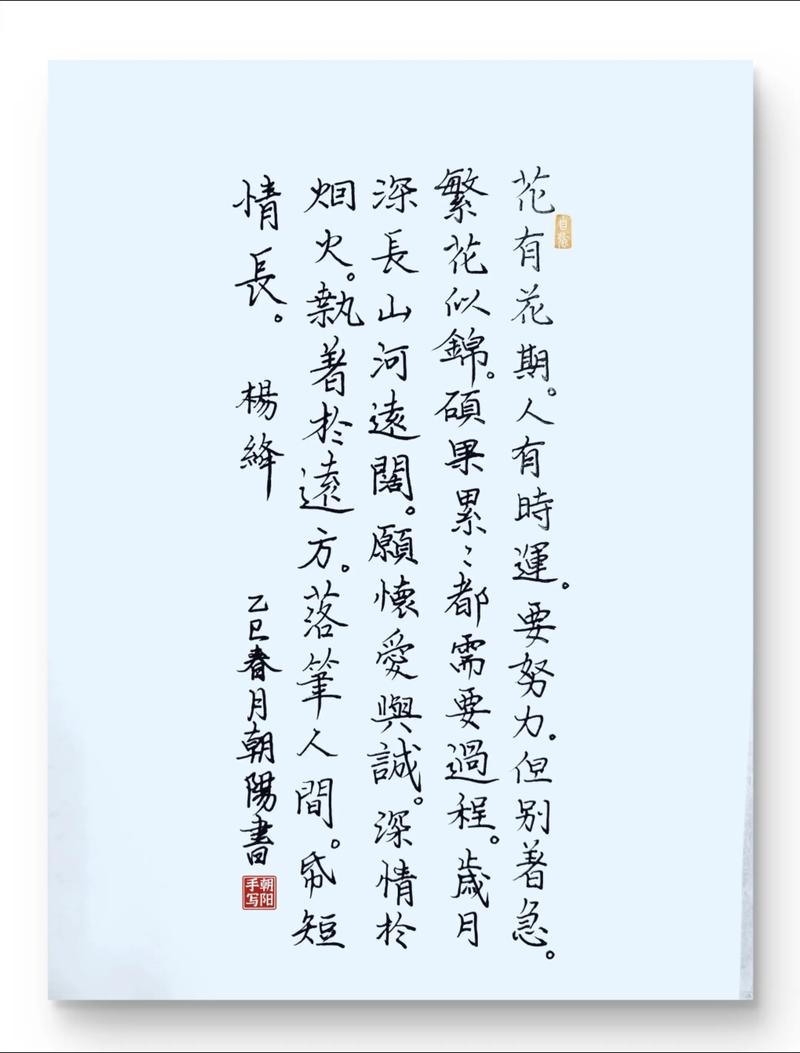 花有花期。人有時運。要努力。但别著急。
繁花似錦。碩果累〻都需要過程。歲月
深長山河遠闊。願懷愛與誠。深情於
烟火。執著於遠方。落筆人間。帋短
情長。 楊絳
乙巳春月朝陽書
朝阳手写